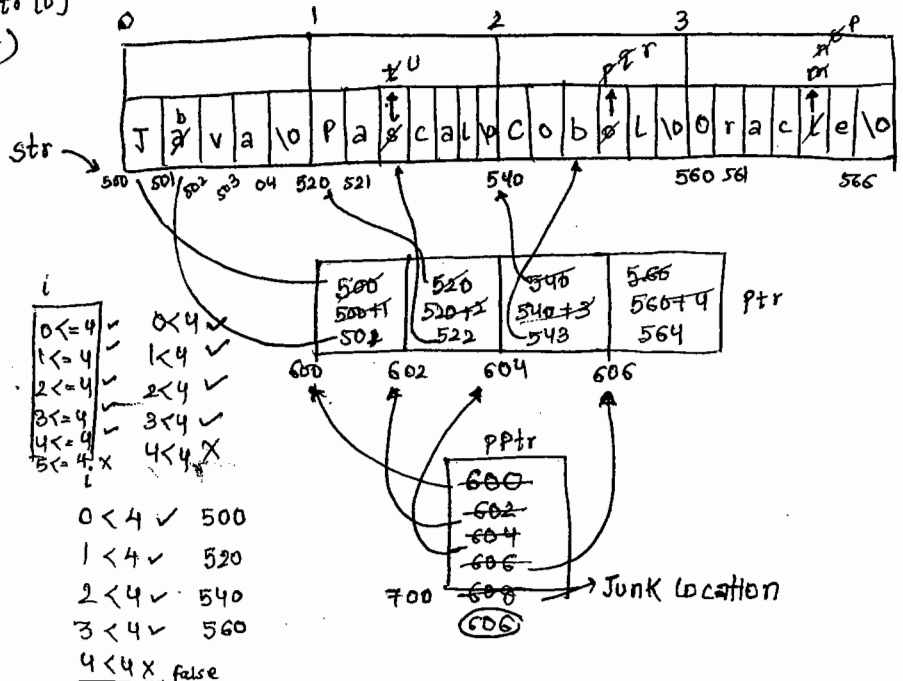 0 1 2 3
t U p q r m n o P
b
J a v a \0 P a s c a l p C o b o L \0 O r a c l e \0
str
500 501 502 503 04 520 521 540 560 561 566
500 520 540 560
500+1 520+2 540+3 560+4
502 522 543 564
Ptr
600 602 604 606
i
0<=4 ✓ 0<4 ✓
1<=4 ✓ 1<4 ✓
2<=4 ✓ 2<4 ✓
3<=4 ✓ 3<4 ✓
4<=4 ✓ 4<4 X
5<=4 X
i
0<4 ✓ 500
1<4 ✓ 520
2<4 ✓ 540
3<4 ✓ 560
4<4 X false
PPtr
600
602
604
606
700 608 Junk location
606